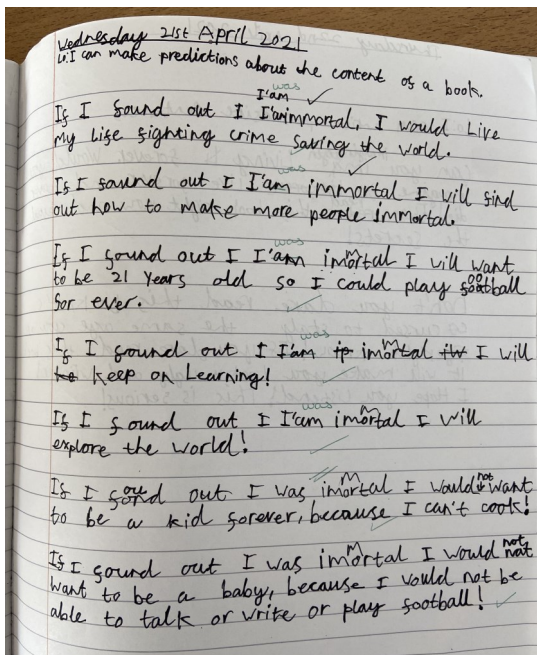 Wednesday 21st April 2021
Lo: I can make predictions about the content of a book.
was
I'am ✓
If I found out I I'am immortal, I would Live
my life fighting crime saving the world.
was ✓
If I found out I I'am immortal I will find
out how to make more people immortal.
was
If I found out I I'am imortal I will want
m
to be 21 years old so I could play football
for ever.
was
If I found out I I'am ip imortal iw I will
m
to keep on Learning!
was
If I found out I I'am imortal I will
m
explore the world!
If I found out I was imortal I would not want
m
to be a kid forever, because I can't cook!
If I found out I was imortal I would not
m
want to be a baby, because I would not be
able to talk or write or play football!